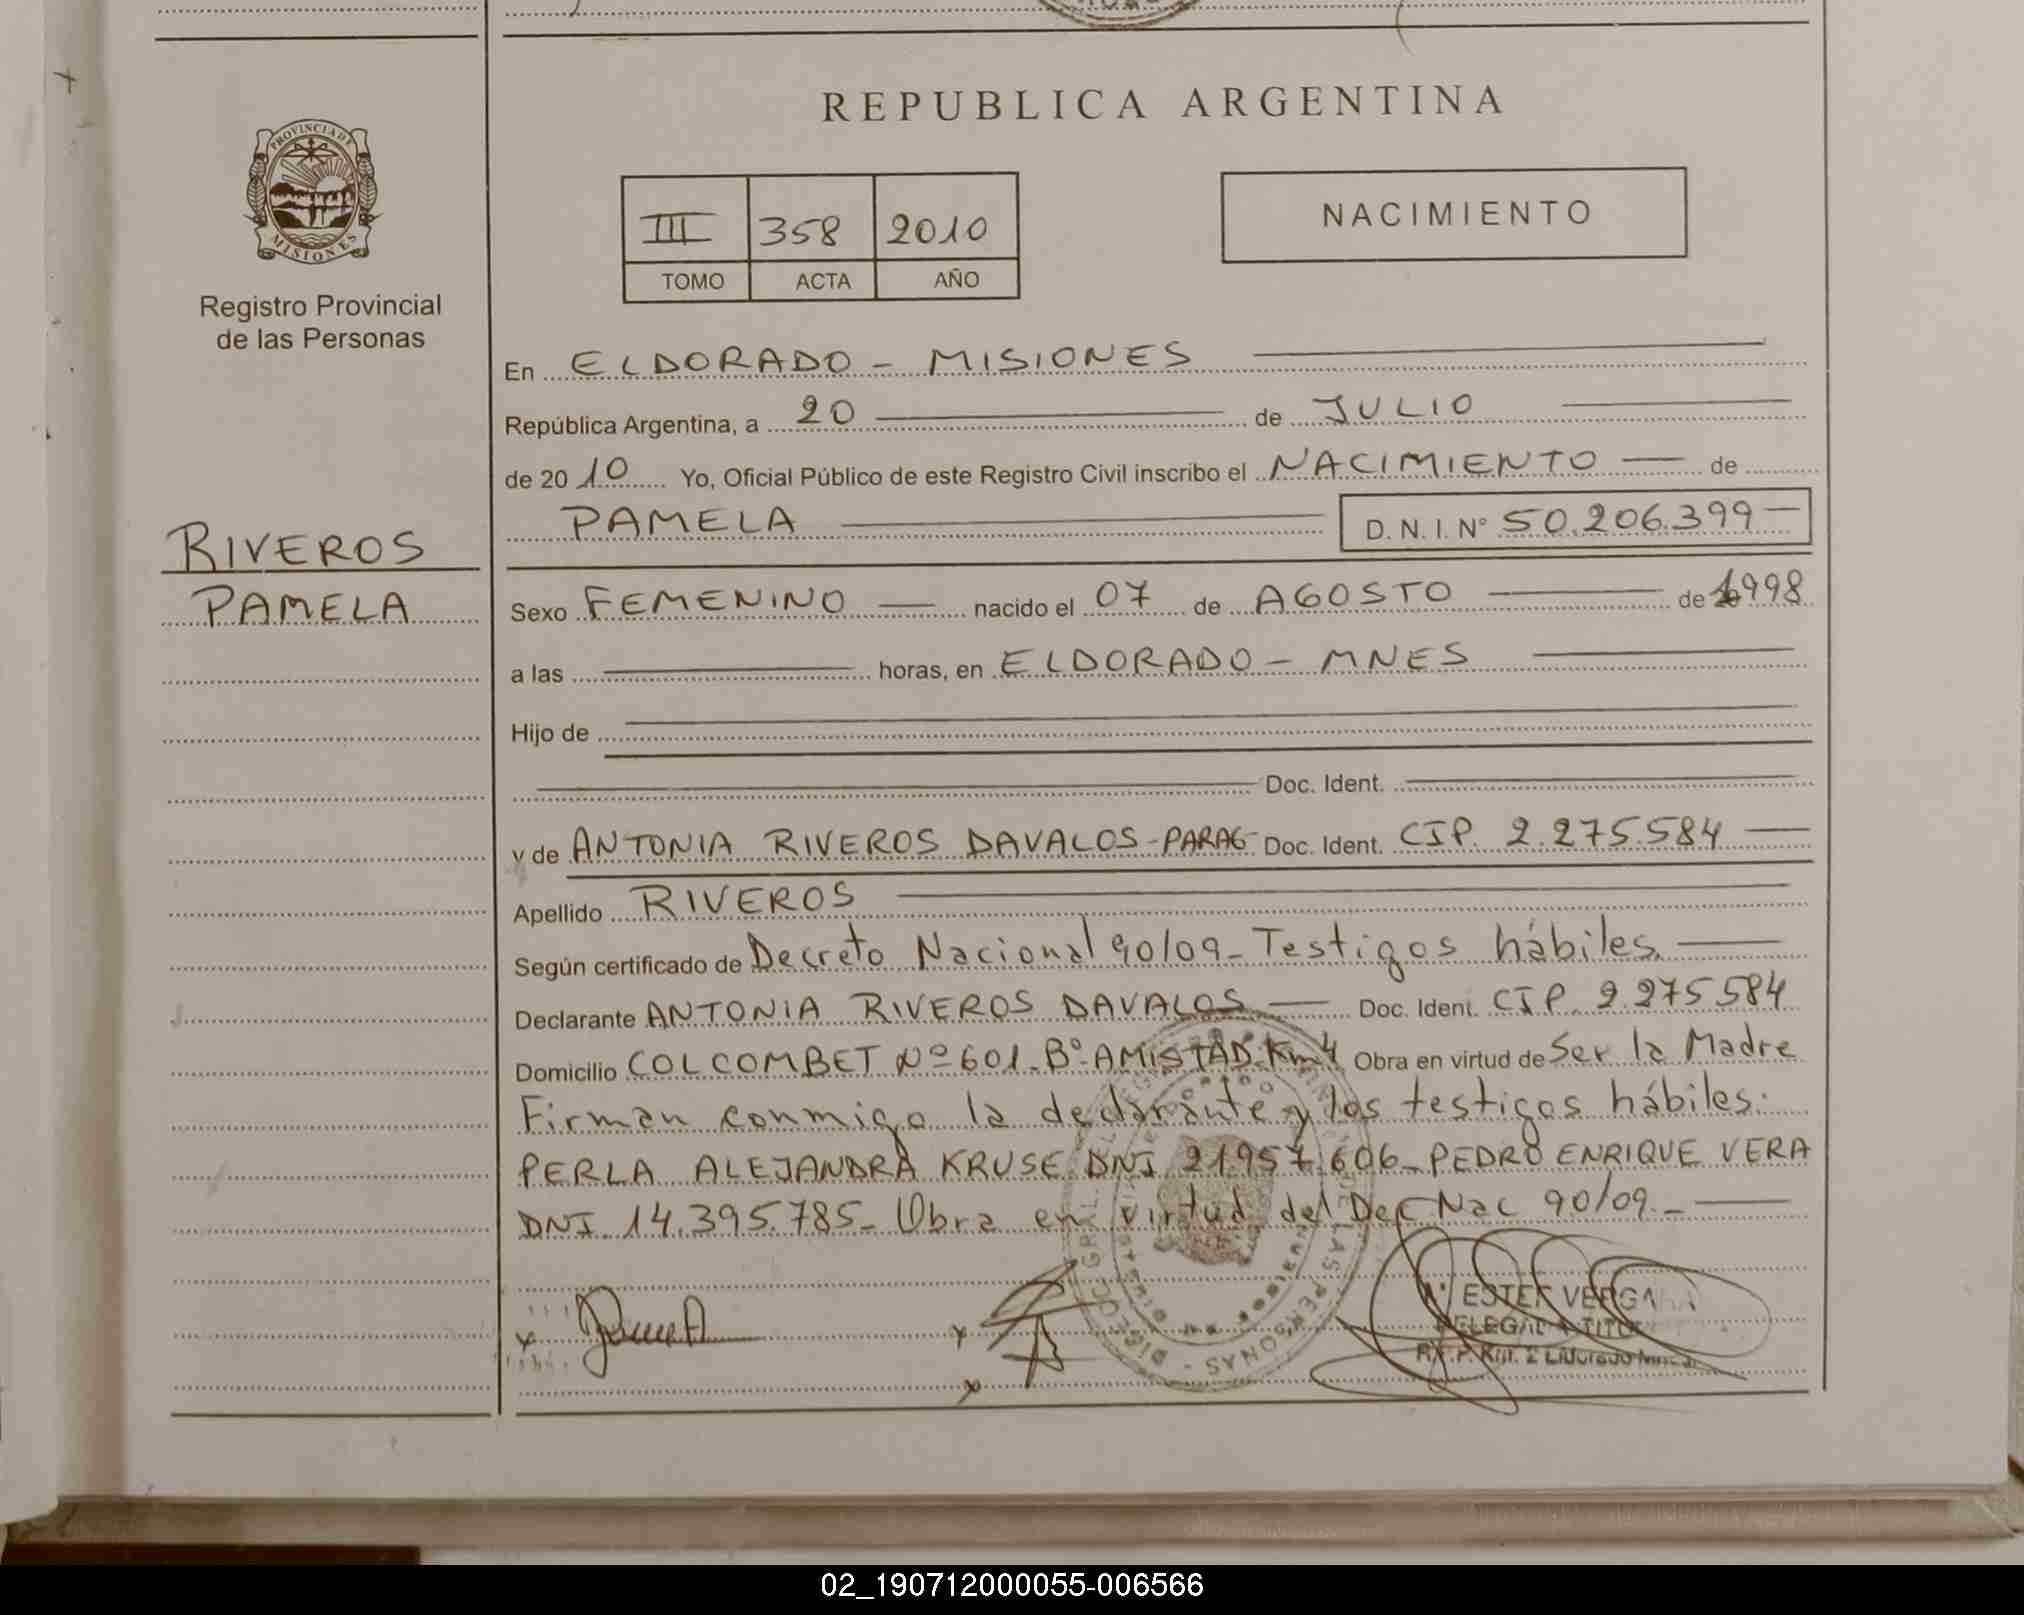 REPUBLICA ARGENTINA
PROVINCIA DE
MISIONES
Registro Provincial
de las Personas
III 358 2010
TOMO ACTA AÑO
NACIMIENTO
En ELDORADO - MISIONES
República Argentina, a 20 de JULIO
de 2010 Yo, Oficial Público de este Registro Civil inscribo el NACIMIENTO de
PAMELA D. N. I. N° 50.206.399
RIVEROS
PAMELA
Sexo FEMENINO nacido el 07 de AGOSTO de 1998
a las horas, en ELDORADO - MNES
Hijo de
Doc. Ident.
y de ANTONIA RIVEROS DAVALOS - PARAG - Doc. Ident. CIP. 2.275.584
Apellido RIVEROS
Según certificado de Decreto Nacional 90/09 - Testigos hábiles.
Declarante ANTONIA RIVEROS DAVALOS Doc. Ident. CIP. 2.275.584
Domicilio COLCOMBET Nº 601 - Bº AMISTAD - Km 4 Obra en virtud de Ser la Madre
Firman conmigo la declarante y los testigos hábiles:
PERLA ALEJANDRA KRUSE DNI 21.957.606 - PEDRO ENRIQUE VERA
DNI 14.395.785 - Obra en virtud del Dec Nac 90/09. -
ESTER VERGARA
02_190712000055-006566